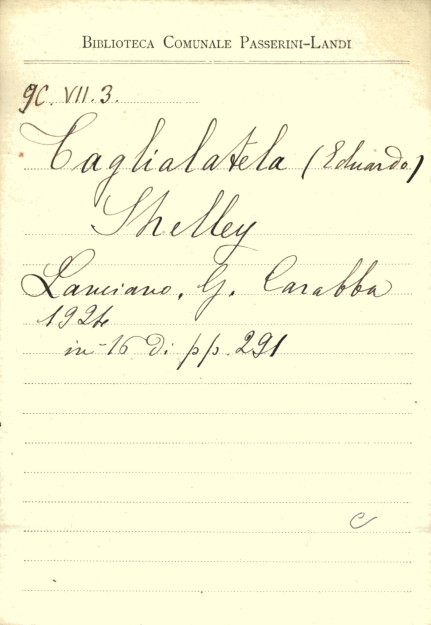 BIBLIOTECA COMUNALE PASSERINI-LANDI
9C. VII. 3.
Taglialatela (Eduardo)
Shelley
Lanciano, G. Carabba
1924
in-16 di pp. 291
C